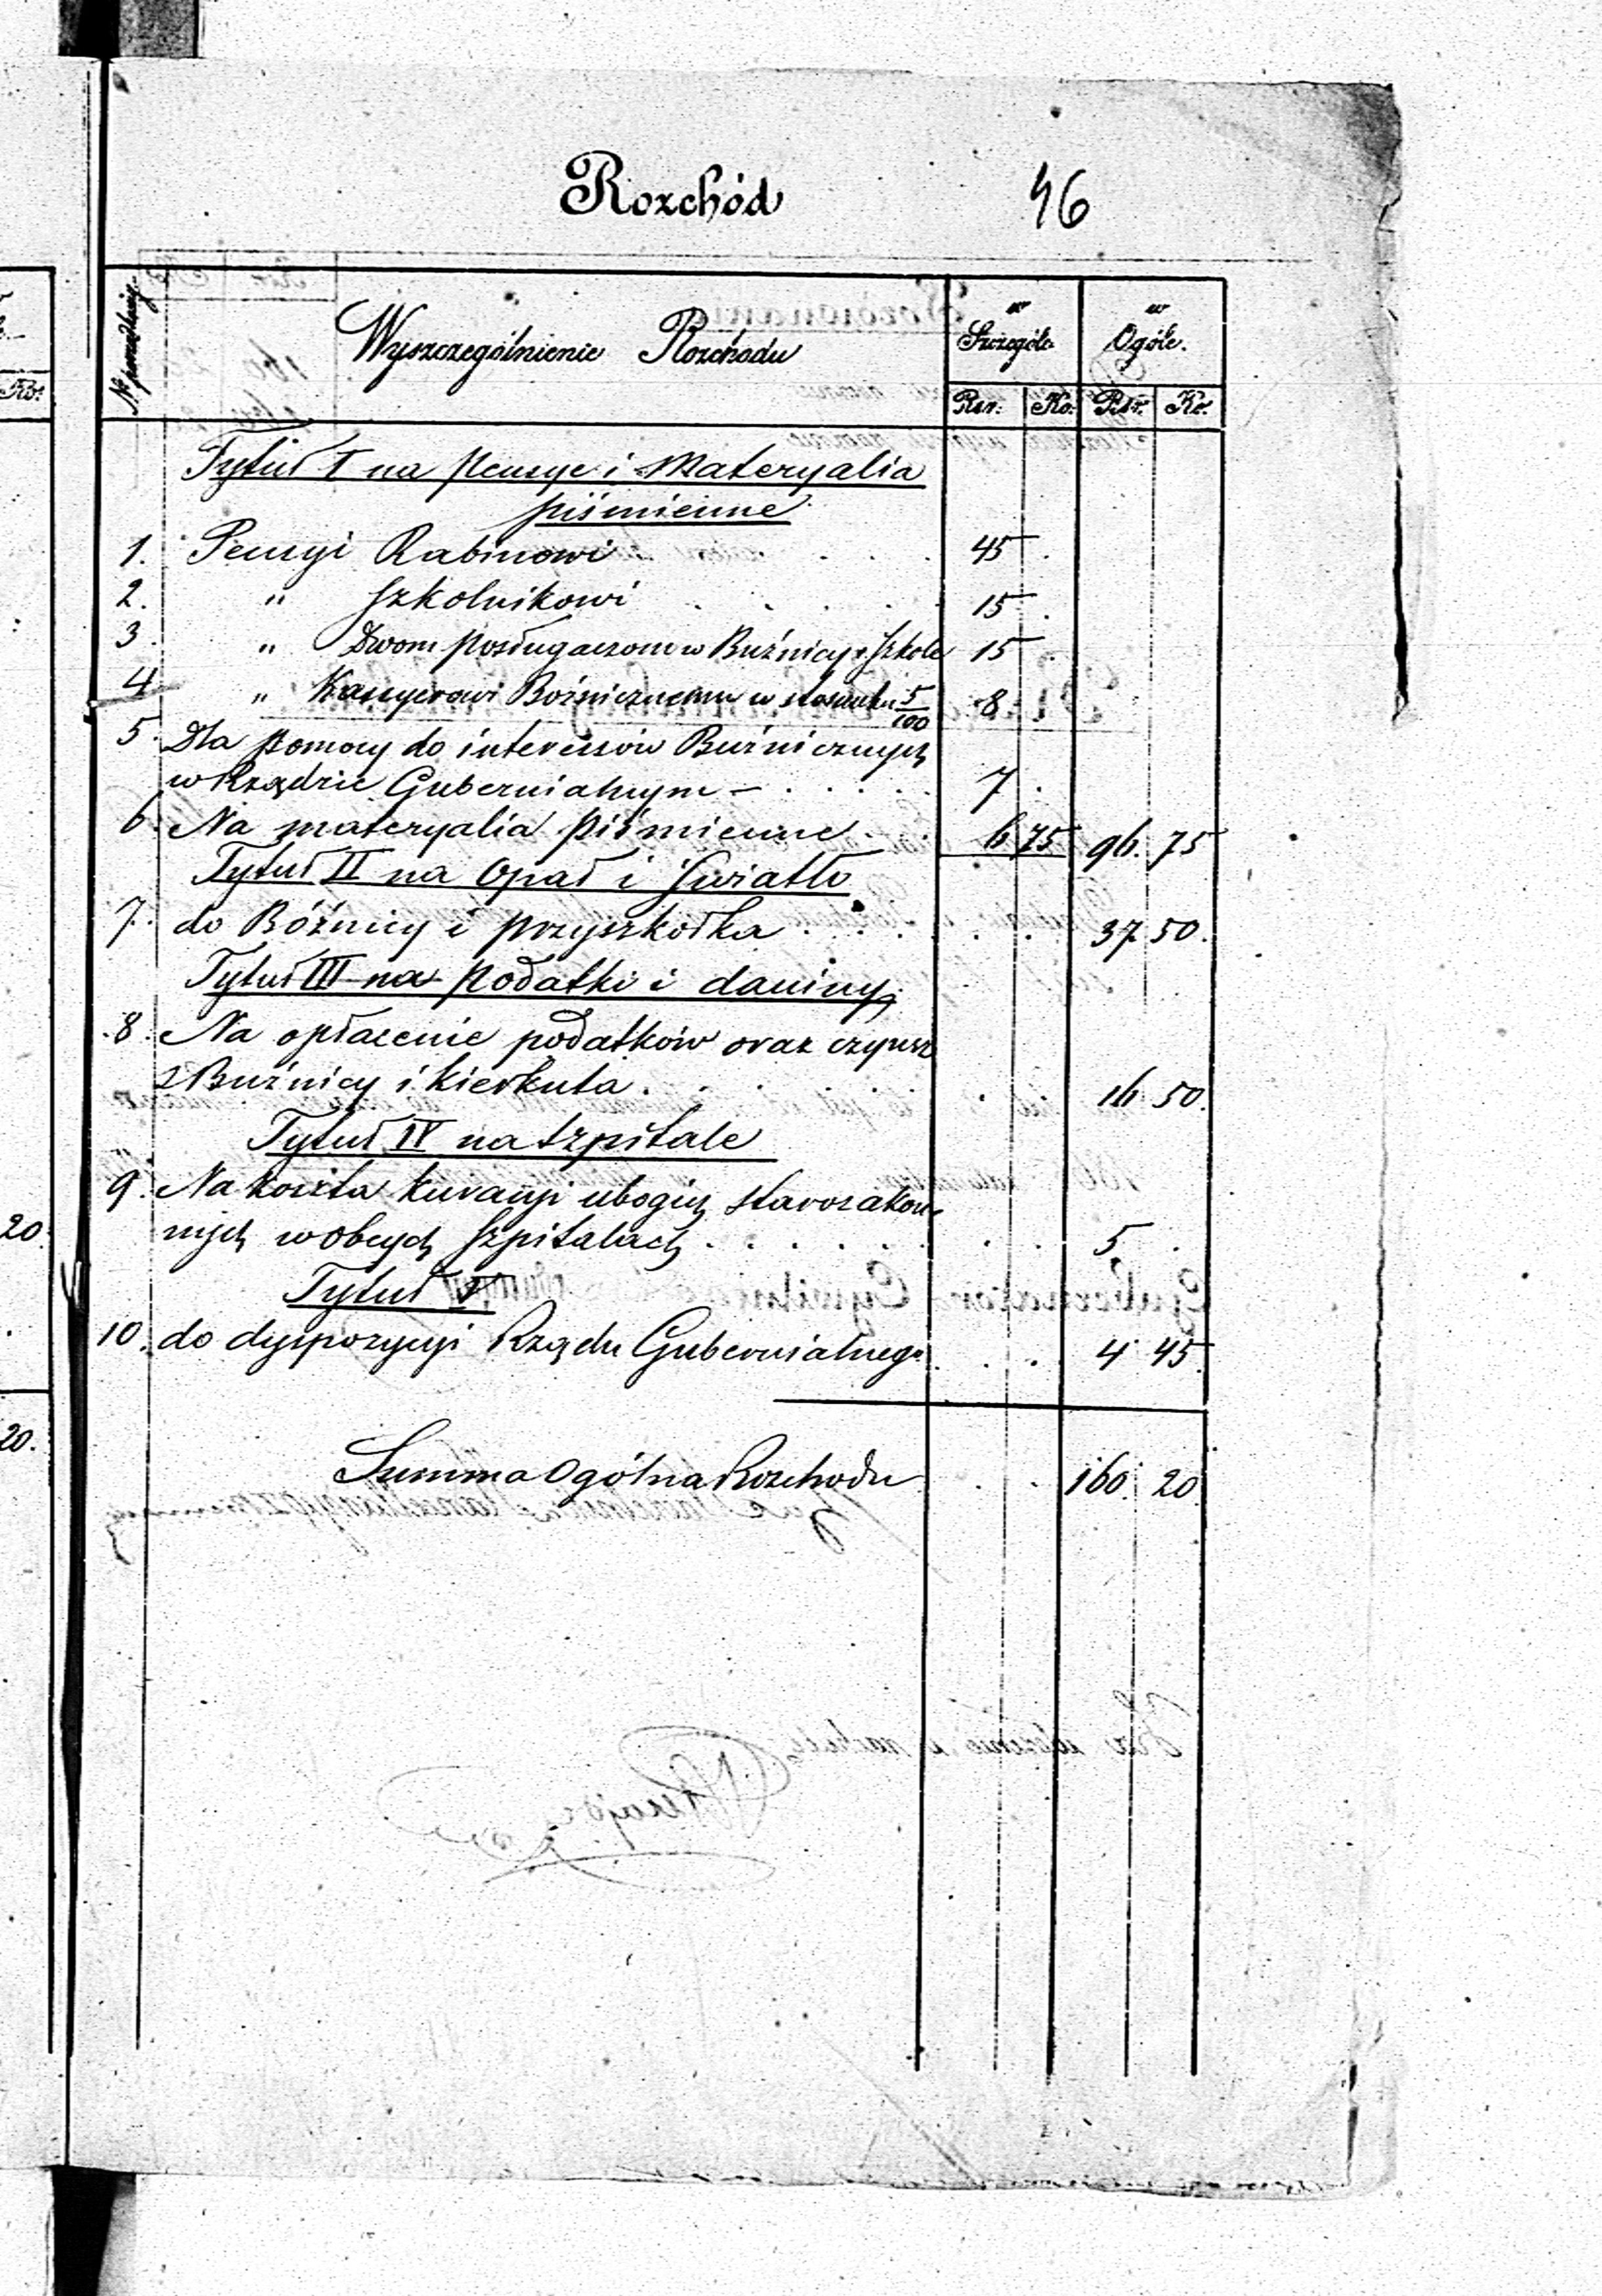 Rozchód
46
№ porządkowy
Wyszczególnienie Rozchodu
w Szczególe
w Ogóle.
Rsr. Ko. Rsr. Ko.
Tytuł I na pensye i Materyalia
piśmienne
1. Pensyi Rabinowi 45
2. " Szkolnikowi 15
3. " Dwom posługaczom w Buźnicy i Szkole 15
4 " Kassyerowi Bożnicznemu w stosunku 5/100 8
5. Dla pomocy do interessów Buźnicznych
w Rządzie Gubernialnym 7
6. Na materyalia piśmienne 6 75 96. 75
Tytuł II na Opał i Swiatło
7. do Bóźnicy i przyszkołka 37 50.
Tytuł III na podatki i daniny
8. Na opłacenie podatków oraz czynsz
z Buźnicy i Kierkuta 16 50.
Tytuł IV na szpitale
9. Na koszta kuracyi ubogich starozakon-
nych w obcych szpitalach 5.
Tytuł V
10. do dyspozycyi Rządu Gubernialnego 4 45
Summa Ogólna Rozchodu 160. 20
Ko.
20.
20.